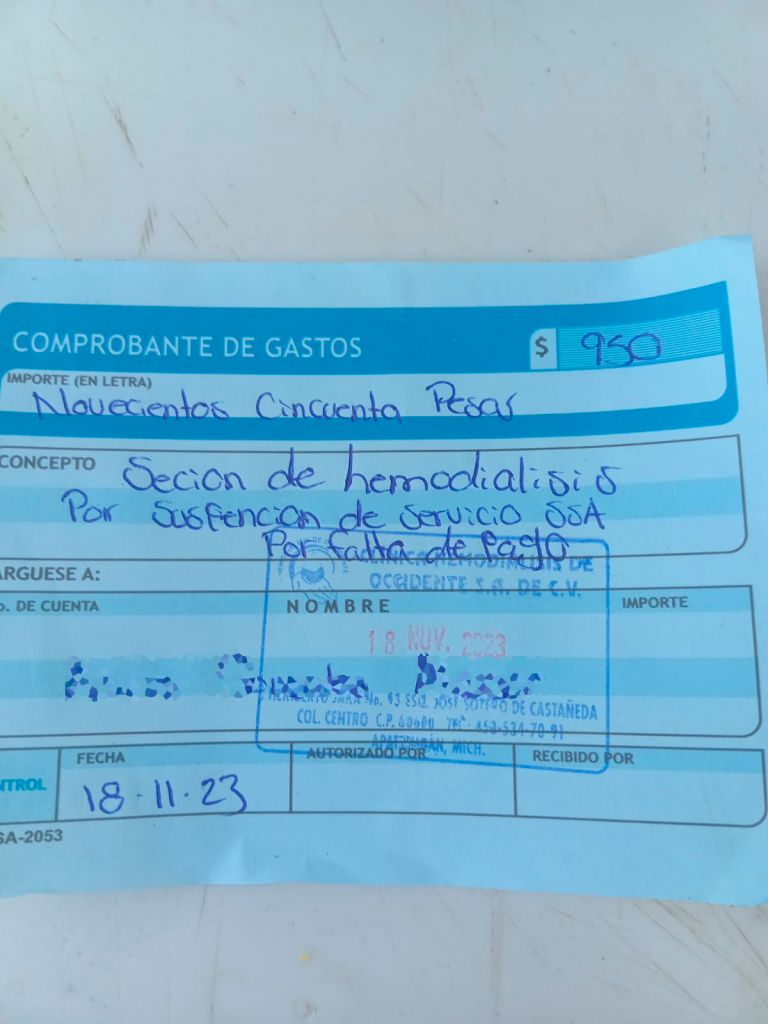 COMPROBANTE DE GASTOS
$ 950
IMPORTE (EN LETRA)
Novecientos Cincuenta Pesos
CONCEPTO Secion de hemodialisis
Por Suspencion de Servicio SSA
Por falta de Pago
DE
OCCIDENTE S.A. DE C.V.
ARGUESE A:
O. DE CUENTA
NOMBRE
IMPORTE
18 NOV. 2023
JARA No. 93 ESQ. JOSÉ SOTERO DE CASTAÑEDA
COL. CENTRO C.P. 60600 TEL. 453-534-70-91
APATZINGÁN, MICH.
NTROL
FECHA
AUTORIZADO POR
RECIBIDO POR
18-11-23
SA-2053